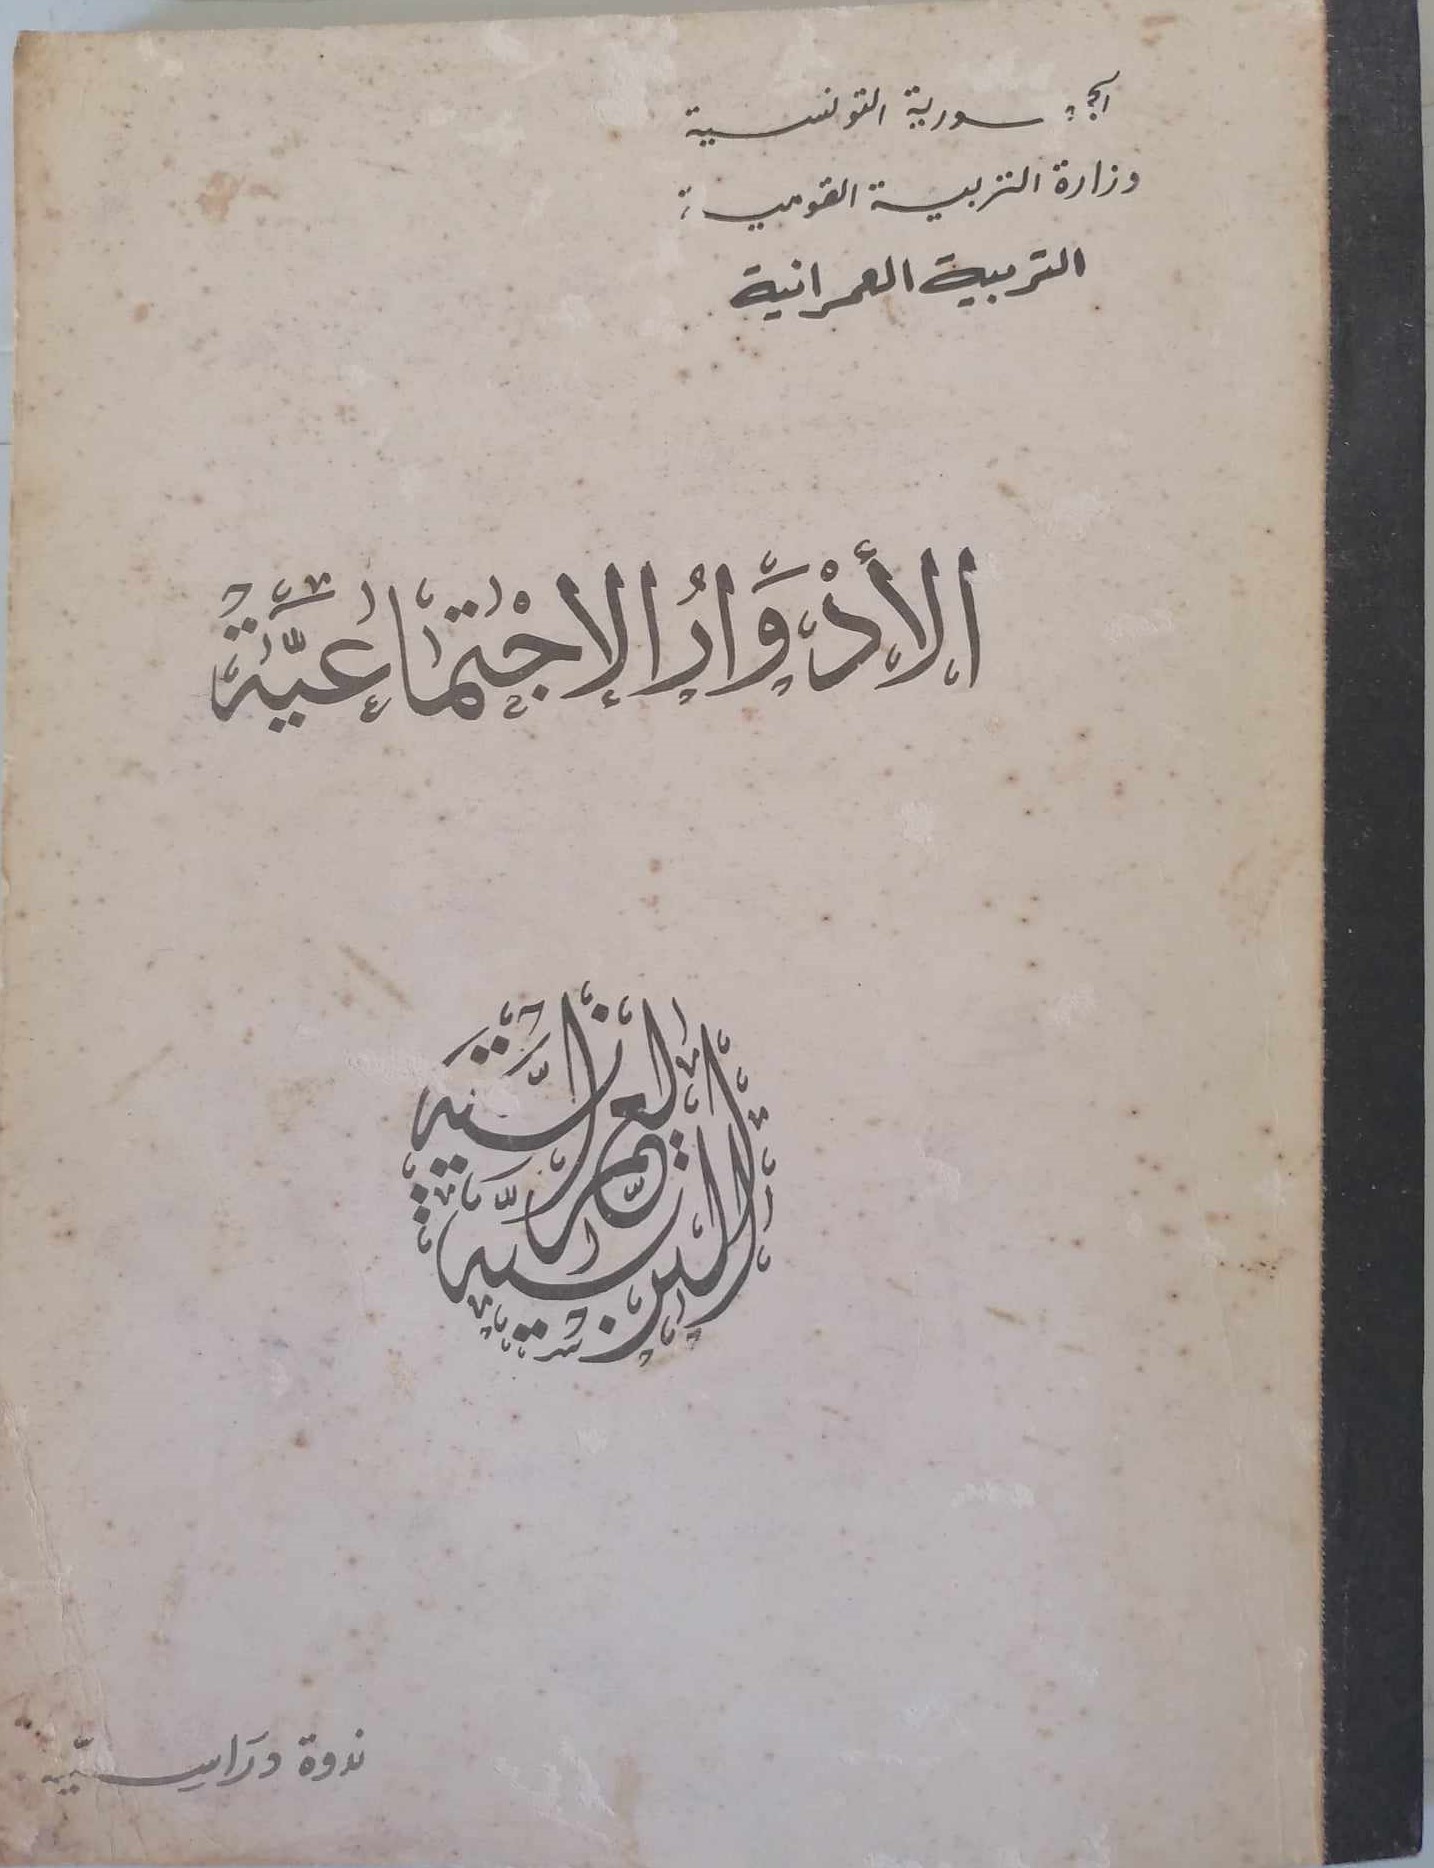 الجمهورية التونسية
وزارة التربية القومية
التربية العمرانية
الأَدْوَارُ الإِجْتِمَاعِيَّة
التربية
العمرانية
ندوة دراسيّة